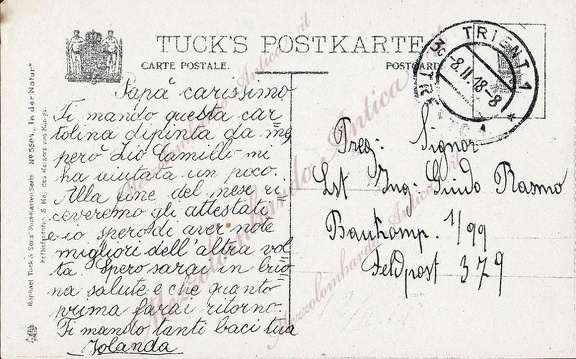 TUCK'S POSTKARTE
CARTE POSTALE. POSTCARD.
TRIENT 1
-8.II.18-8
Papà carissimo
Ti mando questa car
tolina dipinta da me
però Zio Camillo mi
ha aiutata un poco.
Alla fine del mese ri
ceveremo gli attestati
e io spero di aver note
migliori dell'altra vol
ta. Spero sarai in buo
na salute e che quanto
prima farai ritorno.
Ti mando tanti baci tua
Jolanda
Preg: Signor
Lst Ing: Guido Rasmo
Baukomp. 1/99
Feldpost 379
Raphael Tuck & Sons' Postkarten Serie No 550 "In der Natur"
Mezzolombardo Antica